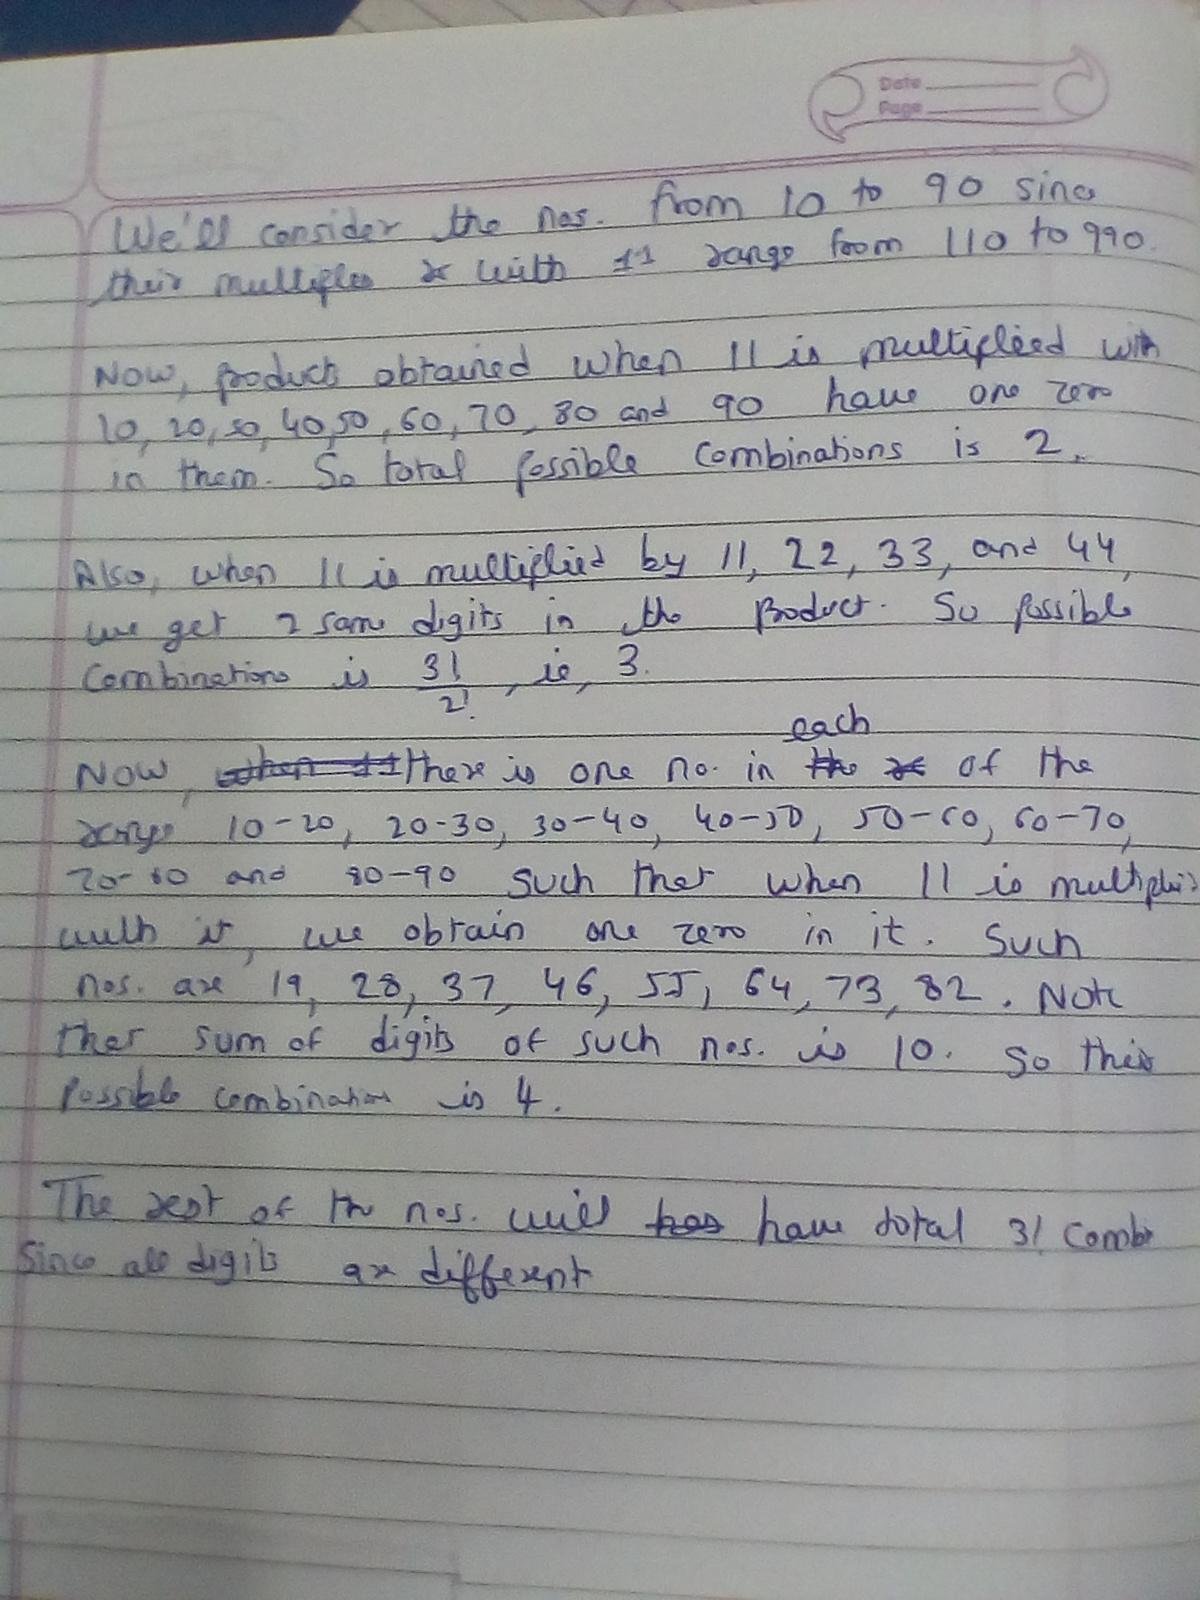 Date
Page
We'll consider the nos. from 10 to 90 since
their multiples with 11 range from 110 to 990.
Now, products obtained when 11 is multiplied with
10, 20, 30, 40, 50, 60, 70, 80 and 90 have one zero
in them. So total possible combinations is 2.
Also, when 11 is multiplied by 11, 22, 33, and 44,
we get 2 same digits in the product. So possible
combinations is 3!/2!, ie, 3.
Now, there is one no. in each of the
range 10-20, 20-30, 30-40, 40-50, 50-60, 60-70,
70-80 and 80-90 such that when 11 is multiplied
with it, we obtain one zero in it. Such
nos. are 19, 28, 37, 46, 55, 64, 73, 82. Note
that sum of digits of such nos. is 10. So their
possible combinations is 4.
The rest of the nos. will have total 3! comb
since all digits are different